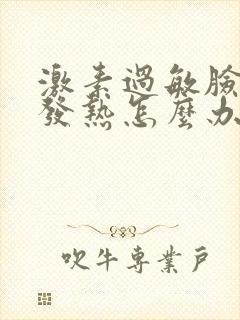 激素過敏臉
發熱怎麼办
吹牛専業戶